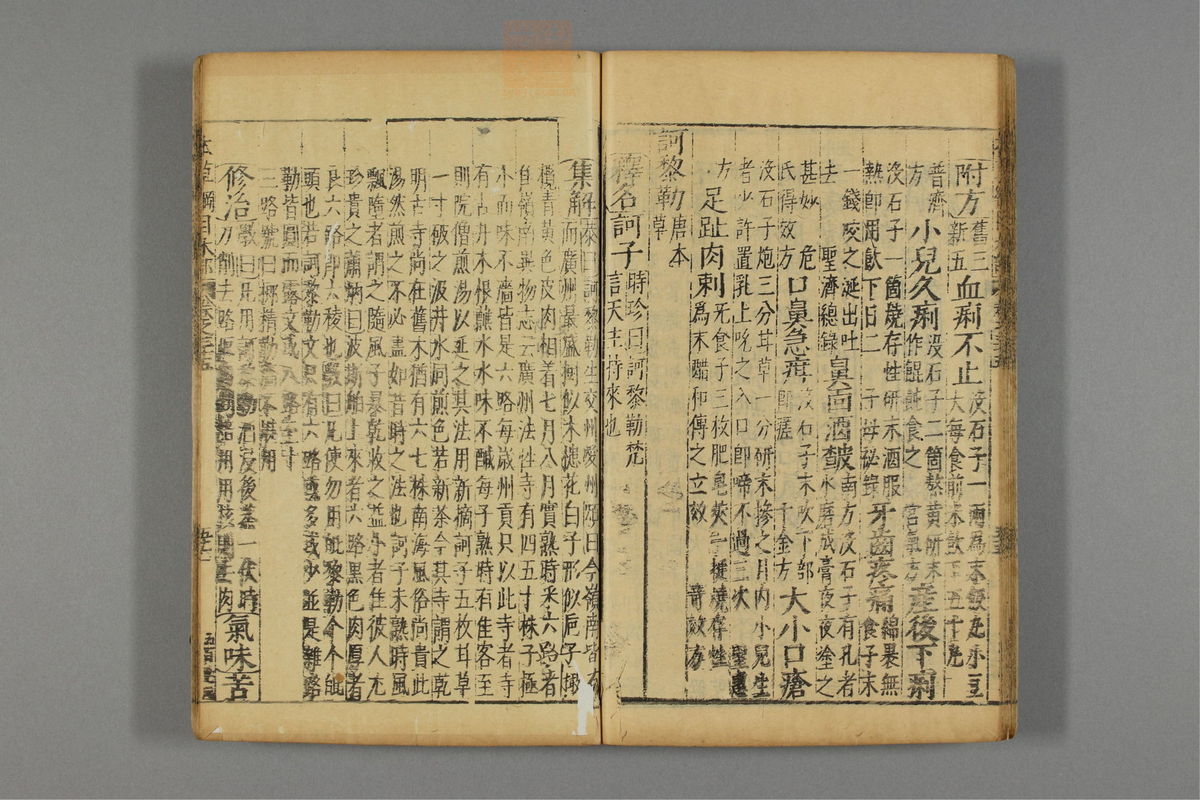 附方舊三新五血痢不止沒石子一兩爲末飯丸小豆大每食前米飲下五十丸
普濟方小兒久痢沒石子二箇熬黄研末作餛飩食之宮氣方產後下痢
沒石子一箇燒存性研末酒服熱卽用飲下日二子母秘錄牙齒疼痛綿裹無食子末
一錢咬之涎出吐去聖濟總錄鼻面酒皶南方沒石子有孔者水磨成膏夜夜塗之
甚妙危氏得效方口鼻急疳沒石子末吹下部卽瘥千金方大小口瘡
沒石子炮三分甘草一分研末摻之月內小兒生者少許置乳上吮之入口卽啼不過三次聖惠方
足趾肉刺無食子三枚肥皂莢一挺燒存性爲末醋和傅之立效奇效方
訶黎勒唐本草
釋名訶子時珍曰訶黎勒梵言天主持來也
集解恭曰訶黎勒生交州愛州頌曰今嶺南皆有而廣州最盛樹似木槵花白子形似巵子橄
欖青黄色皮肉相着七月八月實熟時采六路者
自嶺南異物志云廣州法性寺有四五十株子極
小而味不濇皆是六路每歲州貢只以此寺者寺
有古井木根蘸水水味不鹹每子熟時有佳客至
則院僧煎湯以延之其法用新摘訶子五枚甘草
一寸破之汲井水同煎色若新茶今其寺謂之乾
明古寺尚在舊木猶有六七株南海風俗尚貴此
湯然煎之不必盡如昔時之法也訶子未熟時風
飄墮者謂之隨風子暴乾收之益小者佳彼人尤
珍貴之蕭炳曰波斯舶上來者六路黑色肉厚者
良六路卽六稜也斅曰凡使勿用毗黎勒
頭也若訶黎勒文只有六路或多或少並是雜路
勒皆圓而露文或八路至十
三路號曰榔精勒濇不堪用
修治斅曰凡用訶黎勒酒浸後蒸一伏時刀削去路取肉剉焙用用核則去肉氣味苦